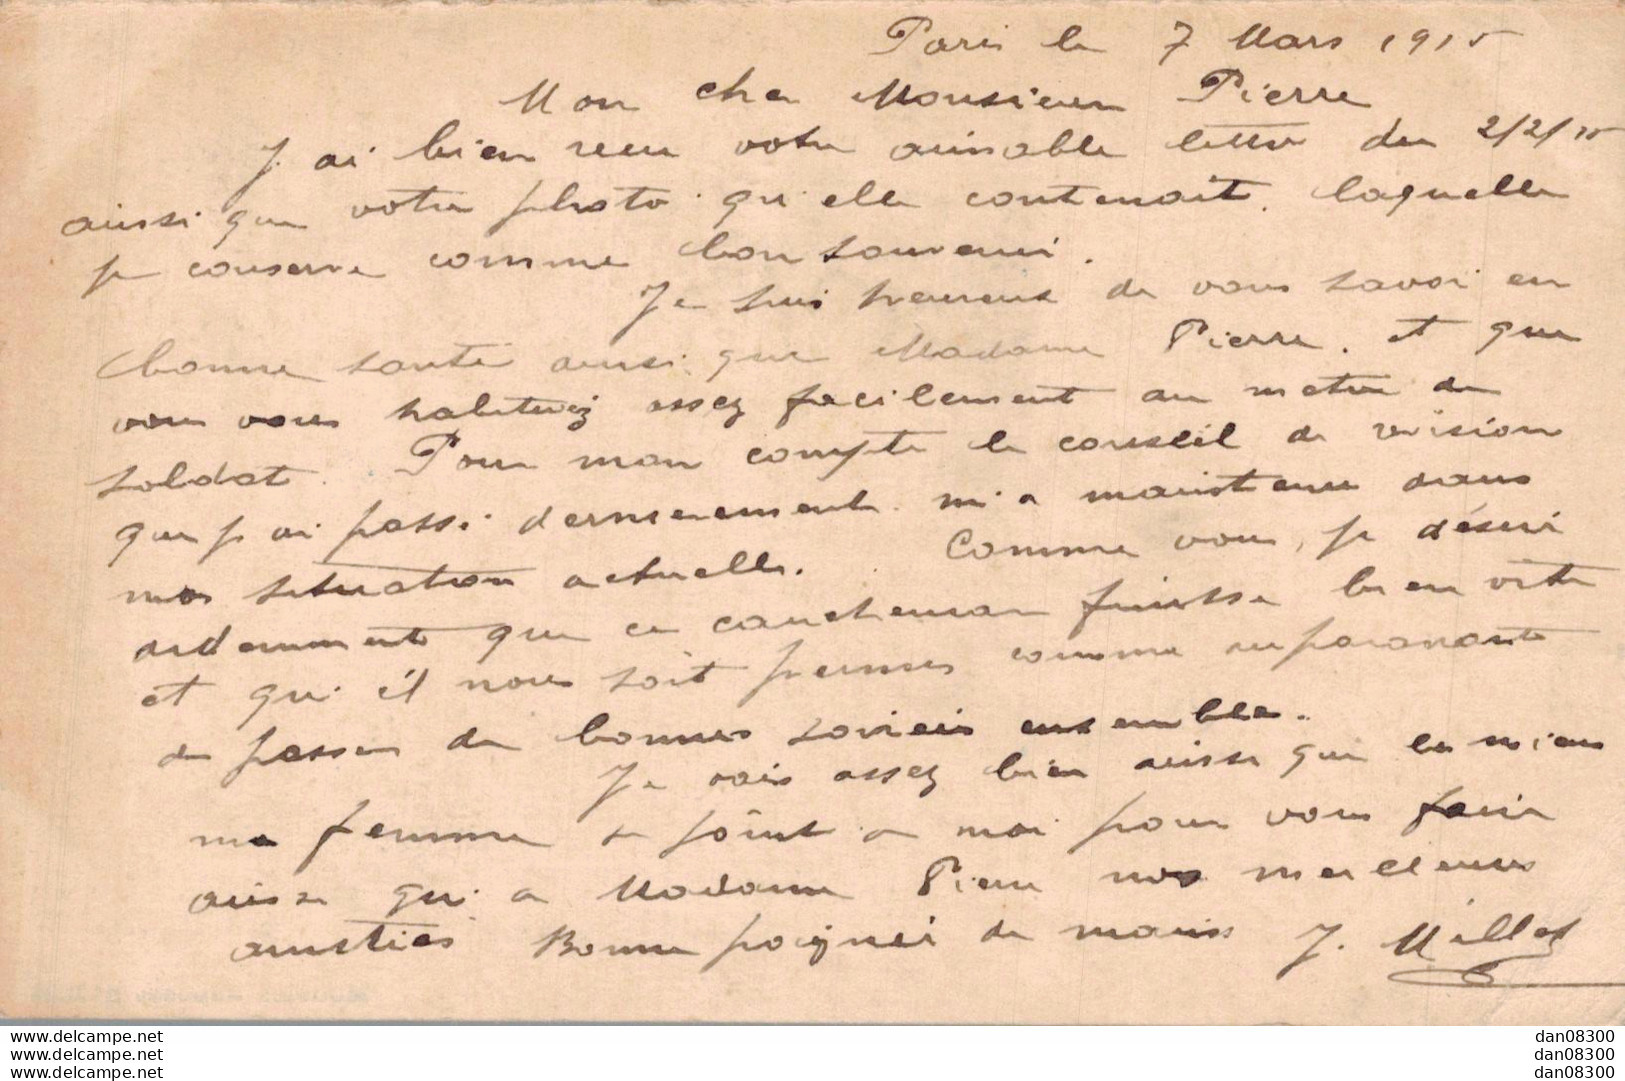 Paris le 7 Mars 1915
Mon cher Monsieur Pierre
J'ai bien recu votre aimable lettre du 2/2/15
ainsi que votre photo qu'elle contenait. laquelle
je conserve comme bon souvenir.
Je suis heureux de vous savoir en
bonne santé ainsi que Madame Pierre. et que
vous vous habituez assez facilement au metier de
soldat. Pour mon compte le conseil de revision
que j'ai passé dernierement. m'a maintenu dans
ma situation actuelle. Comme vous, je désire
ardemment que ce cauchemar finisse bien vite
et qu'il nous soit permis comme auparavant
de passer de bonnes soirées ensemble.
Je vais assez bien ainsi que les miens
ma femme se joint a moi pour vous faire
ainsi qu'a Madame Pierre nos meilleures
amitiés Bonne poignée de mains J. Millet
www.delcampe.net dan08300
www.delcampe.net dan08300
www.delcampe.net dan08300